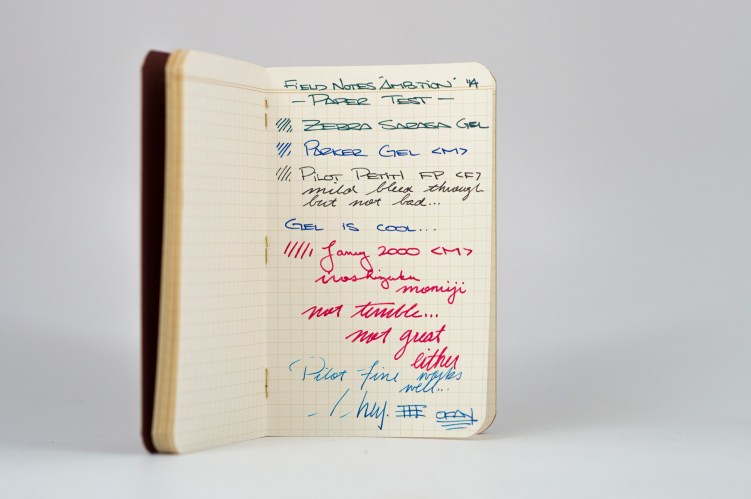 FIELD NOTES "AMBITION" '14
– PAPER TEST –
ZEBRA SARASA GEL
PARKER GEL <M>
PILOT PETIT1 FP <F>
mild bleed through
but not bad...
GEL IS COOL...
Lamy 2000 <M>
iroshizuku
momiji
not terrible...
not great
either
Pilot fine works
well...
hey.
OKAY